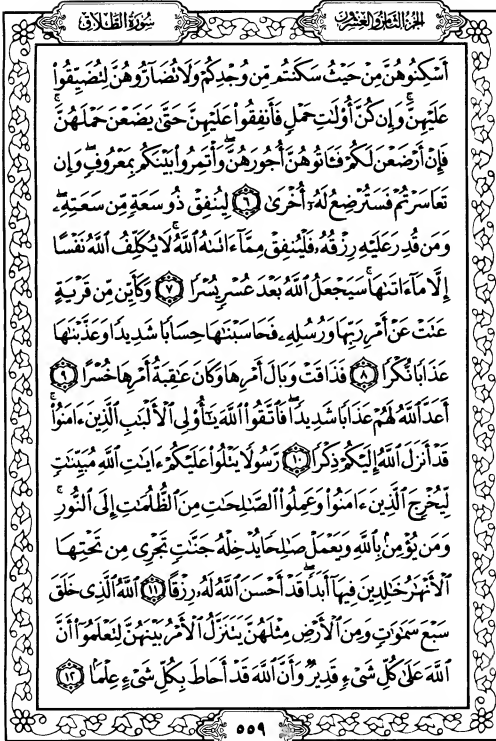 سُورَةُ الطَّلَاقِ
الجُزْءُ الثَّامِنُ وَالْعِشْرُونَ
أَسْكِنُوهُنَّ مِنْ حَيْثُ سَكَنتُم مِّن وُجْدِكُمْ وَلَا تُضَآرُّوهُنَّ لِتُضَيِّقُوا۟
عَلَيْهِنَّ ۚ وَإِن كُنَّ أُو۟لَـٰتِ حَمْلٍ فَأَنفِقُوا۟ عَلَيْهِنَّ حَتَّىٰ يَضَعْنَ حَمْلَهُنَّ ۚ
فَإِنْ أَرْضَعْنَ لَكُمْ فَـَٔاتُوهُنَّ أُجُورَهُنَّ ۖ وَأْتَمِرُوا۟ بَيْنَكُم بِمَعْرُوفٍ ۖ وَإِن
تَعَاسَرْتُمْ فَسَتُرْضِعُ لَهُۥٓ أُخْرَىٰ ٦ لِيُنفِقْ ذُو سَعَةٍ مِّن سَعَتِهِۦ ۖ
وَمَن قُدِرَ عَلَيْهِ رِزْقُهُۥ فَلْيُنفِقْ مِمَّآ ءَاتَىٰهُ ٱللَّهُ ۚ لَا يُكَلِّفُ ٱللَّهُ نَفْسًا
إِلَّا مَآ ءَاتَىٰهَا ۚ سَيَجْعَلُ ٱللَّهُ بَعْدَ عُسْرٍ يُسْرًا ٧ وَكَأَيِّن مِّن قَرْيَةٍ
عَتَتْ عَنْ أَمْرِ رَبِّهَا وَرُسُلِهِۦ فَحَاسَبْنَـٰهَا حِسَابًا شَدِيدًا وَعَذَّبْنَـٰهَا
عَذَابًا نُّكْرًا ٨ فَذَاقَتْ وَبَالَ أَمْرِهَا وَكَانَ عَـٰقِبَةُ أَمْرِهَا خُسْرًا ٩
أَعَدَّ ٱللَّهُ لَهُمْ عَذَابًا شَدِيدًا ۖ فَٱتَّقُوا۟ ٱللَّهَ يَـٰٓأُو۟لِى ٱلْأَلْبَـٰبِ ٱلَّذِينَ ءَامَنُوا۟ ۚ
قَدْ أَنزَلَ ٱللَّهُ إِلَيْكُمْ ذِكْرًا ١٠ رَّسُولًا يَتْلُوا۟ عَلَيْكُمْ ءَايَـٰتِ ٱللَّهِ مُبَيِّنَـٰتٍ
لِّيُخْرِجَ ٱلَّذِينَ ءَامَنُوا۟ وَعَمِلُوا۟ ٱلصَّـٰلِحَـٰتِ مِنَ ٱلظُّلُمَـٰتِ إِلَى ٱلنُّورِ ۚ
وَمَن يُؤْمِنۢ بِٱللَّهِ وَيَعْمَلْ صَـٰلِحًا يُدْخِلْهُ جَنَّـٰتٍ تَجْرِى مِن تَحْتِهَا
ٱلْأَنْهَـٰرُ خَـٰلِدِينَ فِيهَآ أَبَدًا ۖ قَدْ أَحْسَنَ ٱللَّهُ لَهُۥ رِزْقًا ١١ ٱللَّهُ ٱلَّذِى خَلَقَ
سَبْعَ سَمَـٰوَٰتٍ وَمِنَ ٱلْأَرْضِ مِثْلَهُنَّ يَتَنَزَّلُ ٱلْأَمْرُ بَيْنَهُنَّ لِتَعْلَمُوٓا۟ أَنَّ
ٱللَّهَ عَلَىٰ كُلِّ شَىْءٍ قَدِيرٌ وَأَنَّ ٱللَّهَ قَدْ أَحَاطَ بِكُلِّ شَىْءٍ عِلْمًۢا ١٢
٥٥٩